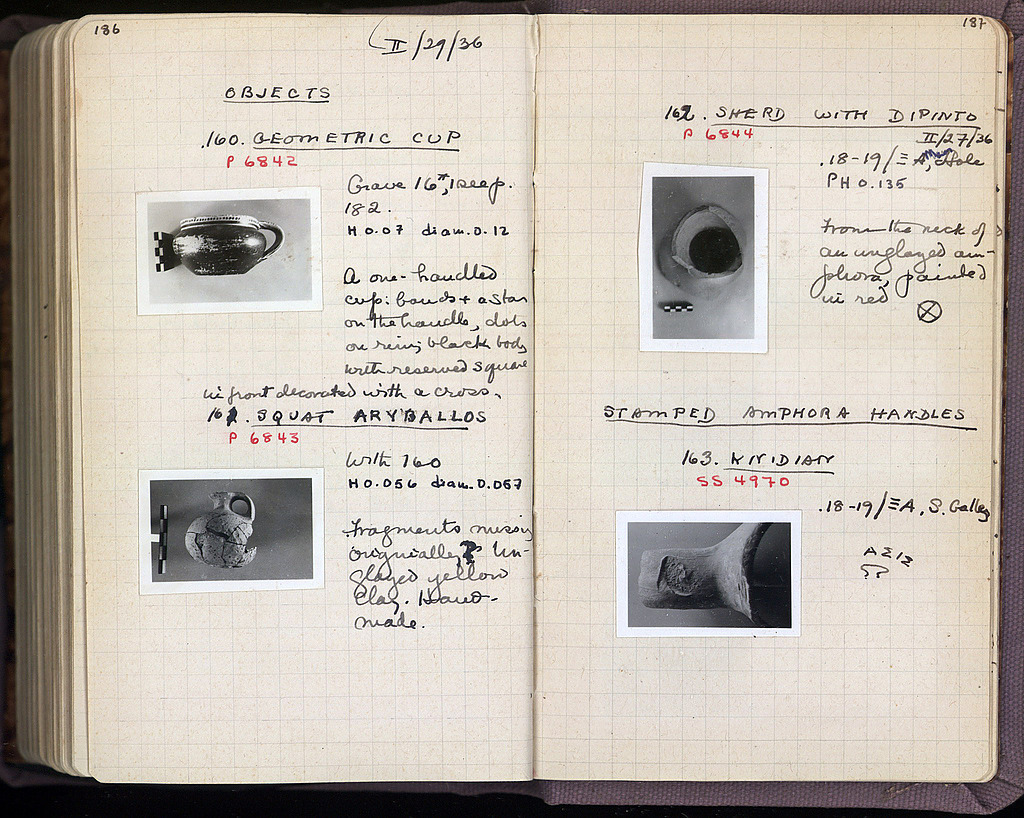 186
II/29/36
OBJECTS
160. GEOMETRIC CUP
P 6842
Grave 16
182.
H 0.07 diam. 0.12
A one-handled
cup: bands + a star
on the handle, dots
on rim; black body
with reserved square
in front decorated with a cross.
161. SQUAT ARYBALLOS
P 6843
With 160
H 0.056 diam. 0.057
Fragments missing
originally? Un-
glazed yellow
clay. Hand-
made.
187
162. SHERD WITH DIPINTO
P 6844
II/27/36
.18-19/ΞA, Main Hole
PH 0.135
From the neck of
an unglazed am-
phora, painted
in red
STAMPED AMPHORA HANDLES
163. KNIDIAN
SS 4970
.18-19/ΞA, S. Galley
ΑΣΙΣ